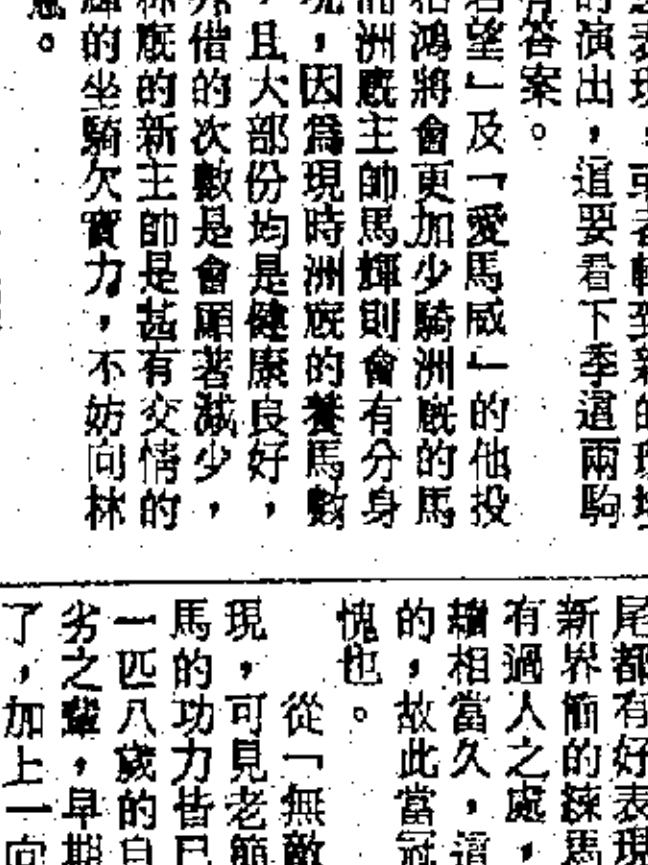 的演出，這要看下季這兩駒
有答案。
名望」及「愛馬威」的他投
柏鴻將會更加少騎洲廐的馬
洲廐主帥馬輝則會有分身
，因為現時洲廐的養馬數
，且大部份均是健康良好，
外借的次數是會顯著減少，
林廐的新主帥是甚有交情的
輝的坐騎欠實力，不妨向林
。
尾都有好表現
新界簡的練馬
有過人之處，
續相當久，這
的，故此當冠
愧也。
從「無敵
現，可見老簡
馬的功力皆已
一匹八歲的自
劣之輩，早期
了，加上一向